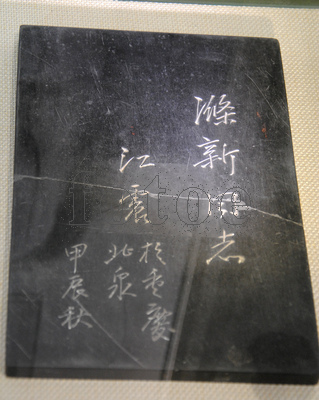 滌新同志
江震
於重慶
北泉
甲辰秋